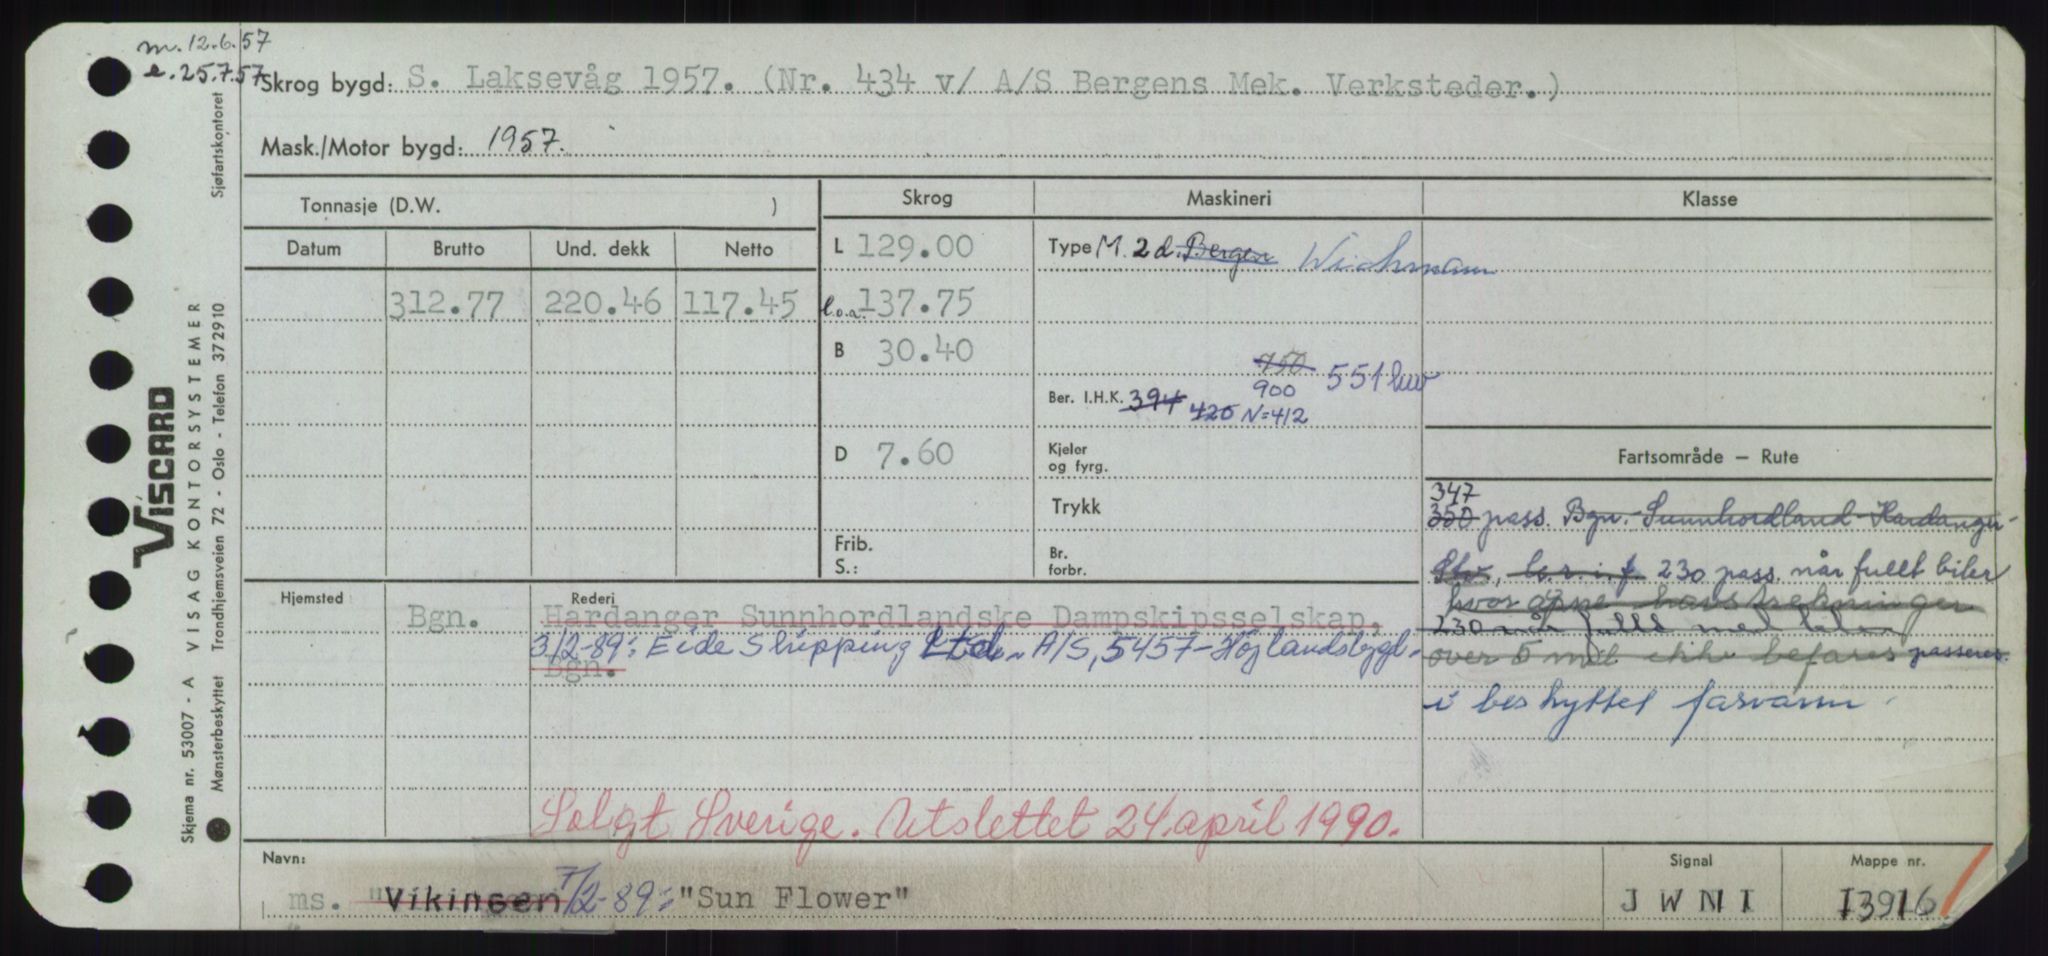 m. 12.6.57
e. 25.7.57
Skrog bygd: S. Laksevåg 1957. (Nr. 434 v/ A/S Bergens Mek. Verksteder.)
Mask./Motor bygd: 1957.
Tonnasje (D.W. )
Skrog
Maskineri
Klasse
Datum
Brutto
Und. dekk
Netto
312.77
220.46
117.45
L 129.00
l.o.a. 137.75
B 30.40
D 7.60
Frib.
S.:
Type M. 2 d. Bergen Wichmann
750
900 551 kw
Ber. I.H.K. 394 420 N=412
Kjeler
og fyrg.
Trykk
Br.
forbr.
Fartsområde — Rute
347
350 pass. Bgn.-Sunnhordland-Hardanger-
230 pass. når fullt biler
hvor åpne havstrekninger
230 når fullt med biler
over 5 mil ikke befares passeres.
i beskyttet farvann.
Hjemsted
Rederi
Bgn. Hardanger Sunnhordlandske Dampskipsselskap,
3/2-89: Eide Shipping Ltd. A/S, 5457-Höjlandsbygd.
Bgn.
Solgt Sverige. Utslettet 24. april 1990.
Navn:
ms. "Vikingen 7/2-89: "Sun Flower"
Signal
J W N I
Mappe nr.
13916
VISCARD
VISAG KONTORSYSTEMER
Skjema nr. 53007 - A
Mønsterbeskyttet Trondhjemsveien 72 - Oslo - Telefon 372910
Sjøfartskontoret